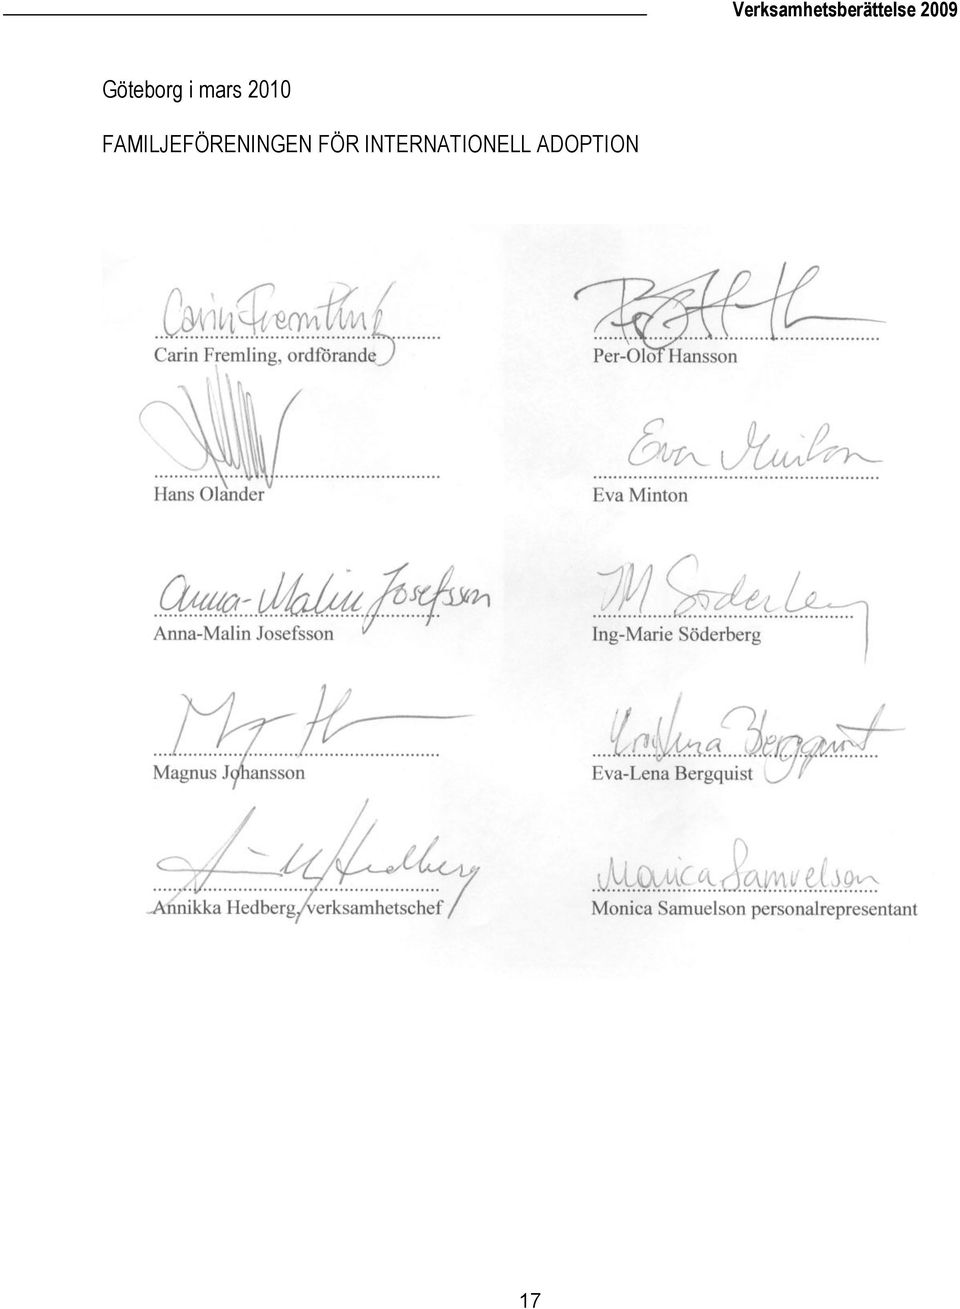 Verksamhetsberättelse 2009
Göteborg i mars 2010
FAMILJEFÖRENINGEN FÖR INTERNATIONELL ADOPTION
Carin Fremling
Carin Fremling, ordförande
Per-Olof Hansson
Hans Olander
Eva Minton
Eva Minton
Anna-Malin Josefsson
Anna-Malin Josefsson
IM Söderberg
Ing-Marie Söderberg
Magnus Johansson
Bergquist
Eva-Lena Bergquist
Hedberg
Annikka Hedberg, verksamhetschef
Monica Samuelson
Monica Samuelson personalrepresentant
17